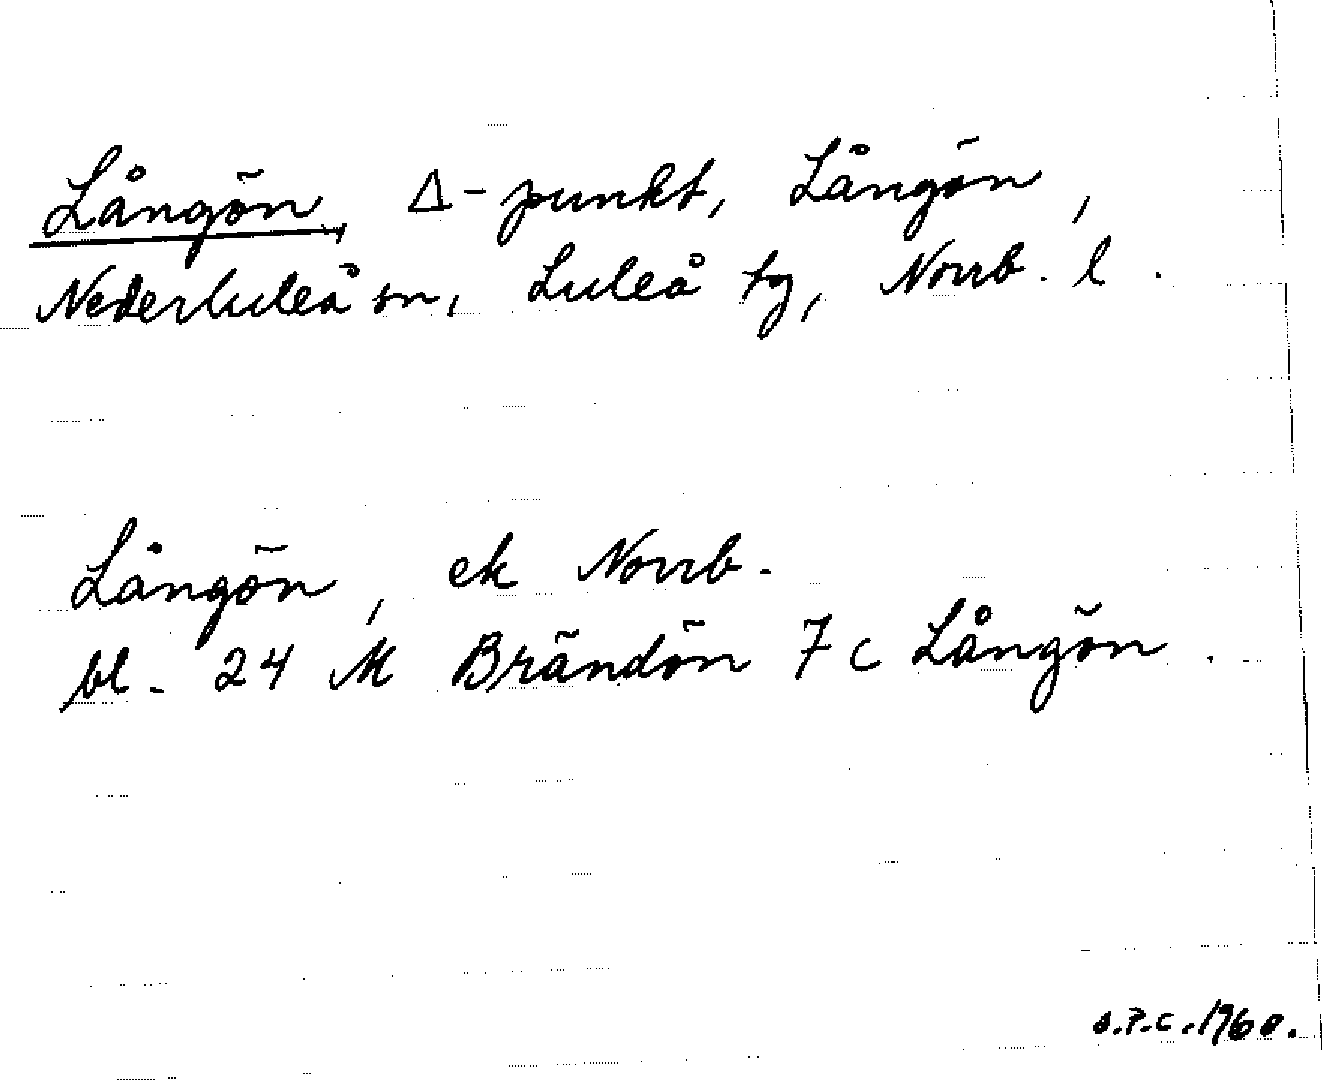 Långön, Δ-punkt, Långön,
Nederluleå sn, Luleå tg, Norrb. l.
Långön, ek Norrb.
bl. 24 M Brändön 7 c Långön.
1960.